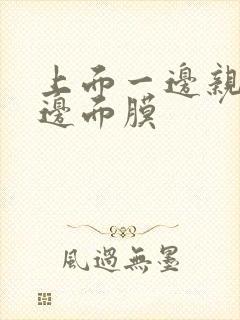 上而一邊親
邊而膜
風過無墨